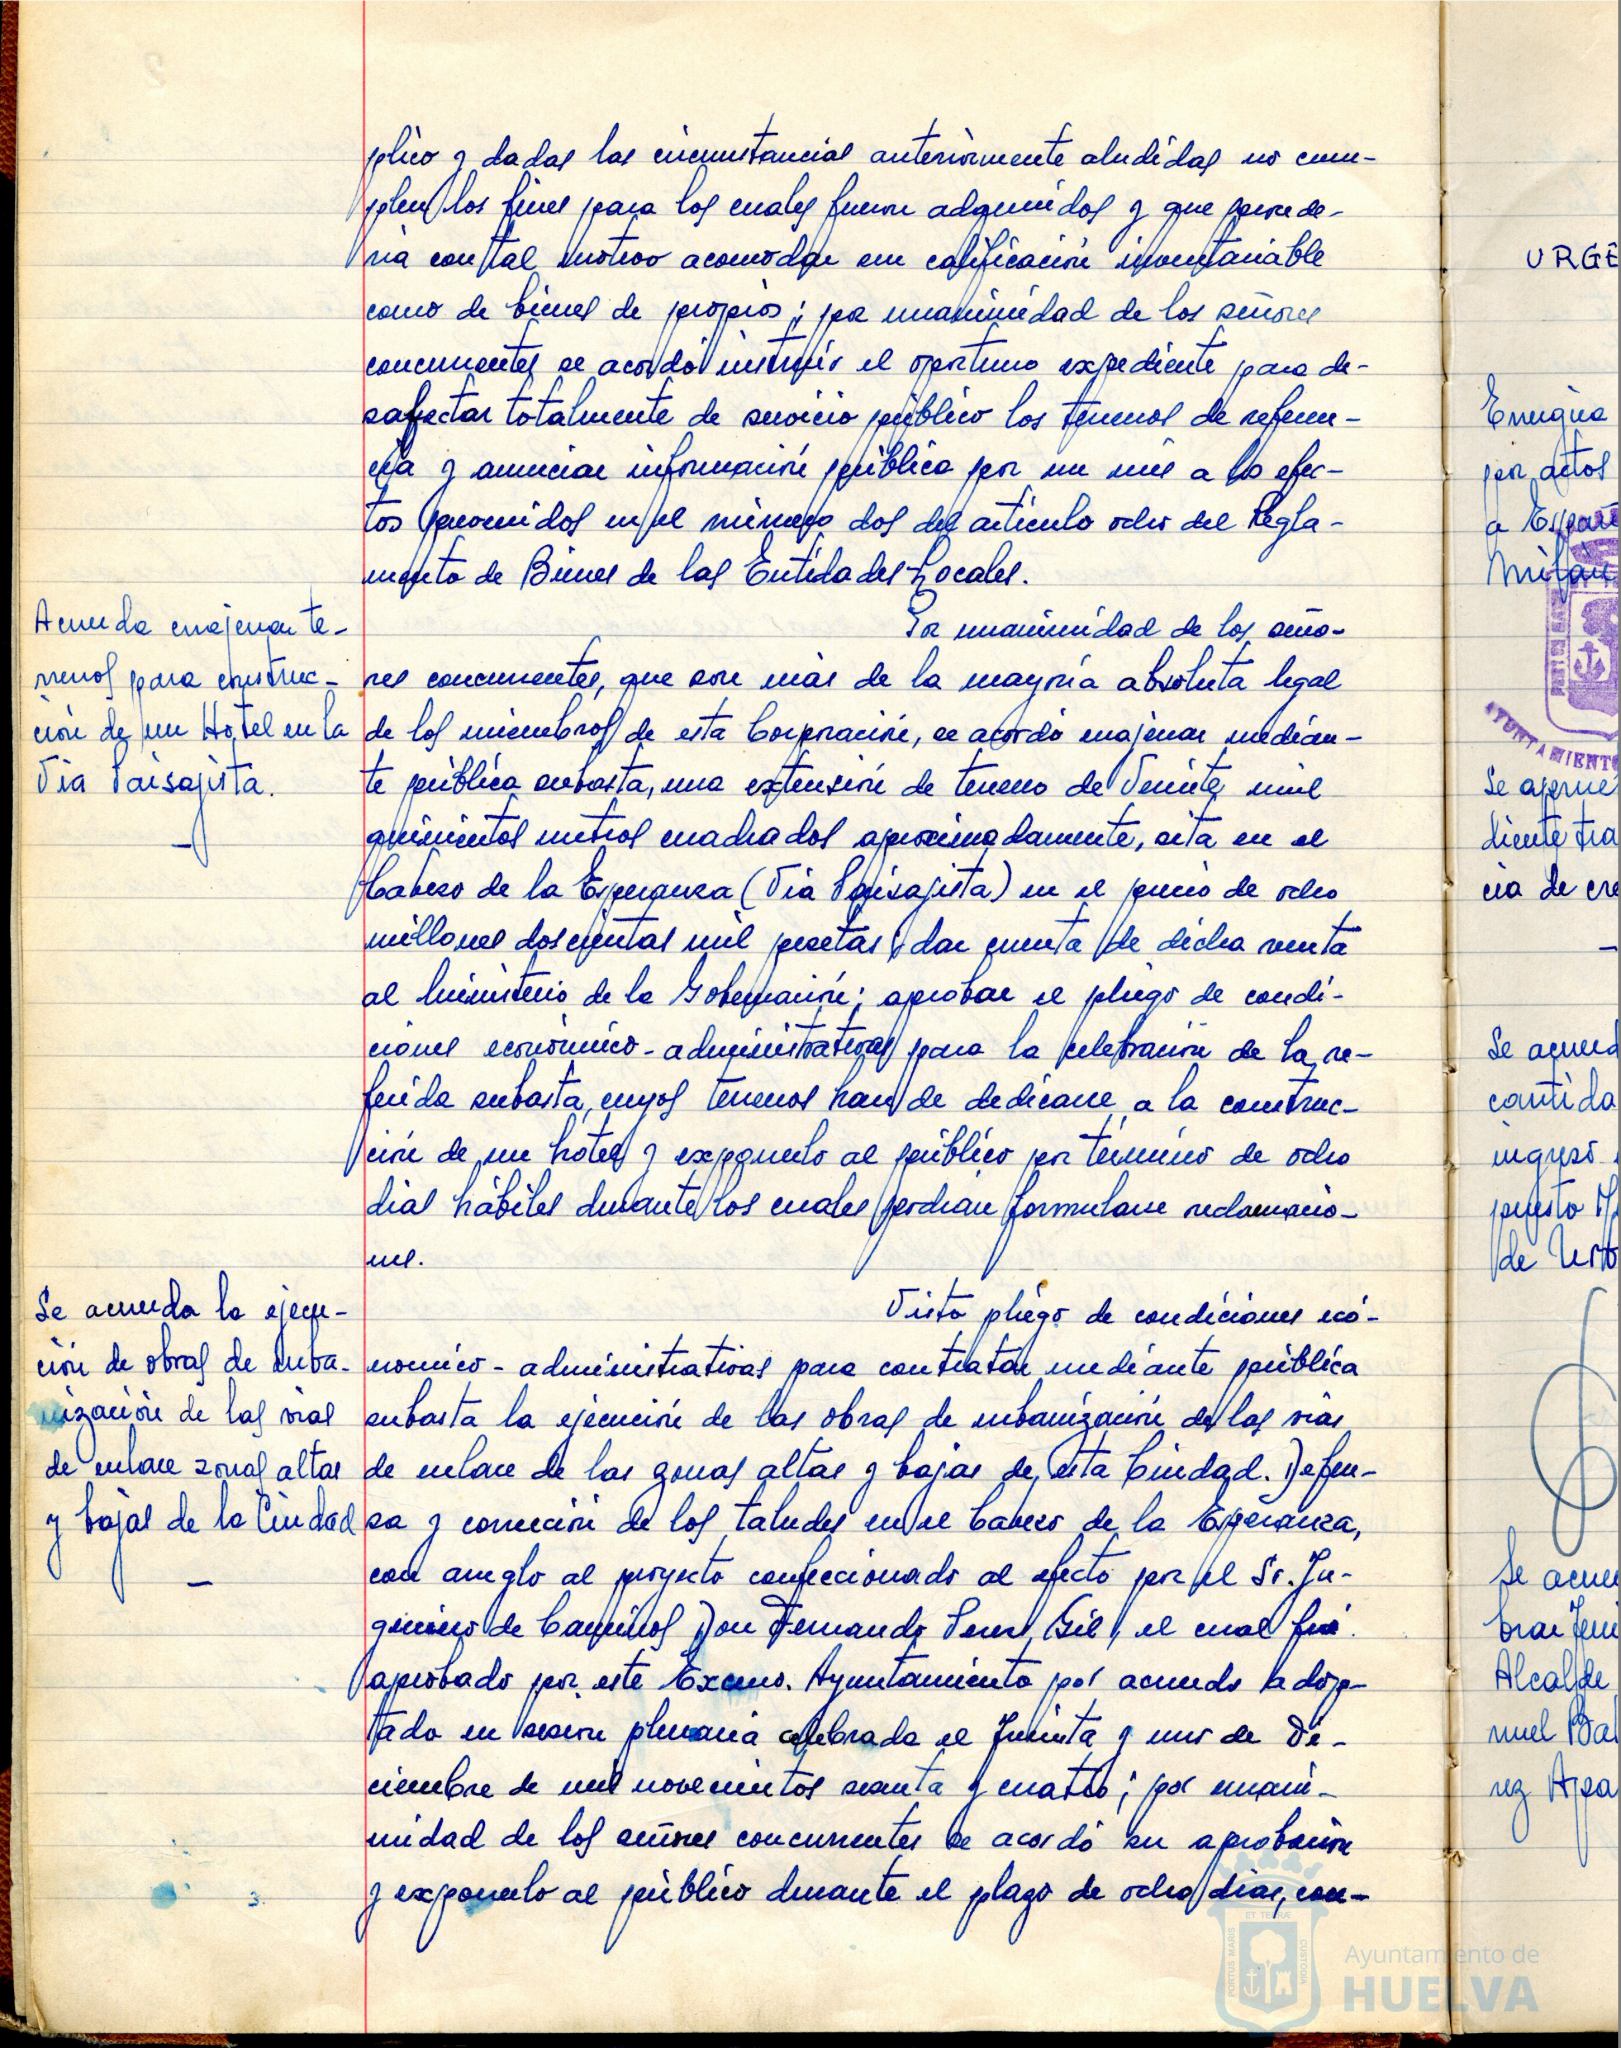 plico y dadas las circunstancias anteriormente aludidas no cum-
plen los fines para los cuales fueron adquiridos y que procede-
ria con tal motivo acomodar em calificación inventariable
como de bienes de propios; por unanimidad de los señores
concurrentes se acordó instruir el oportuno expediente para de-
safectar totalmente de servicio público los terrenos de referen-
cia y anunciar información pública por un mes a lo efec-
tos prevenidos en el número dos del artículo ocho del Regla-
mento de Bienes de las Entidades Locales.
Acuerda enajenar te-
rrenos para construc-
ción de un Hotel en la
Via Paisajista.
Por unanimidad de los seño-
res concurrentes, que son más de la mayoría absoluta legal
de los miembros de esta Corporación, se acordó enajenar median-
te pública subasta, una extensión de terreno de Veinte mil
quinientos metros cuadrados aproximadamente, sita en el
Cabezo de la Esperanza (Via Paisajista) en el precio de ocho
millones doscientas mil pesetas; dar cuenta de dicha venta
al Ministerio de la Gobernación; aprobar el pliego de condi-
ciones económico-administrativas para la celebración de la re-
ferida subasta, cuyos terrenos han de dedicarse a la construc-
ción de un hotel y exponerlo al público por término de ocho
dias hábiles durante los cuales podrian formularse reclamacio-
nes.
Se acuerda la ejecu-
ción de obras de urba-
nización de las vias
de enlace zonas altas
y bajas de la Ciudad
Visto pliego de condiciones eco-
nomico-administrativas para contratar mediante pública
subasta la ejecución de las obras de urbanización de las vias
de enlace de las zonas altas y bajas de esta Ciudad. Defen-
sa y corrección de los taludes en el Cabezo de la Esperanza,
con arreglo al proyecto confeccionado al efecto por el Sr. In-
geniero de Caminos Don Fernando Perez Gil, el cual fué
aprobado por este Excmo. Ayuntamiento por acuerdo adop-
tado en sesión plenaria celebrada el Treinta y uno de Di-
ciembre de mil novecientos sesenta y cuatro; por unani-
midad de los señores concurrentes se acordó su aprobación
y exponerlo al público durante el plazo de ocho dias, con-
URGE
Enrique
por actos
a España
Milán
AYUNTAMIENTO
Se aprue
diente tra
cia de cre
Se acuerd
cantida
ingreso
puesto M
Se acue
brar Teni
Alcalde
nuel Ba
rez Apa
PORTUS MARIS
ET TERRÆ
CUSTODIA
Ayuntamiento de
HUELVA